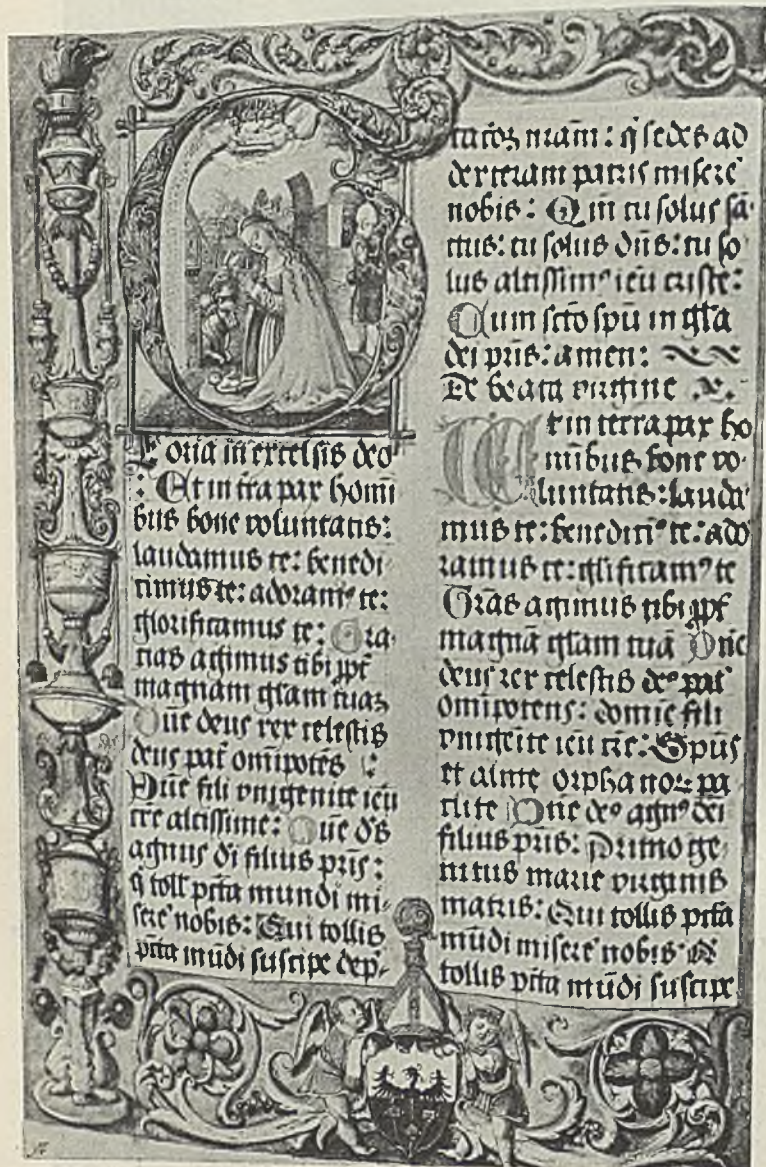 G
loria in excelsis deo
: Et in tra pax homi
bus bone voluntatis:
laudamus te: benedi
cimus te: adoramꝰ te:
glorificamus te: Gra
tias agimus tibi ꝓpt̃
magnam gl̃am tuaꝫ
Dñe deus rex celestis
deus pat̃ omĩpotẽs :
Dñe fili vnigenite ieũ
xr̃e altissime: Dñe d̃s
agnus di filius pr̃is:
q̃ toll̃ pctã mundi mi-
sere nobis: Qui tollis
pctã mũdi suscipe dep-
catõꝫ nr̃am: q̃ sedes ad
dexteram patris misere
nobis: Qm̃ tu solus sã-
ctus: tu solus dñs: tu so
lus altissimꝰ ieũ criste:
Cum sctõ spũ in gl̃a
dei pr̃is: amen:
De beata virgine
Et in terra pax ho
mĩbus bone vo-
luntatis: lauda
mus te: benedicĩꝰ te: ado
ramus te: gl̃ificamꝰ te
Gr̃as agimus tibi ꝓpt̃
magnã gl̃am tuã Dñe
deus rex celestis deꝰ pat̃
omĩpotens: domĩe fili
vnigenite ieũ xr̃e: Spũs
et alme orphanoꝝ pa
clite Dñe deꝰ agnꝰ dei
filius pr̃is: Primoge
nitus marie virginis
matris: Qui tollis pctã
mũdi misere nobis: Q̃
tollis pctã mũdi suscipe